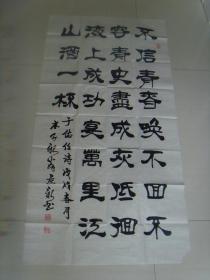 不信青春喚不回不
容青史盡成灰低徊
海上成功宴萬里江
山酒一杯
于佑任詩戊戌春月